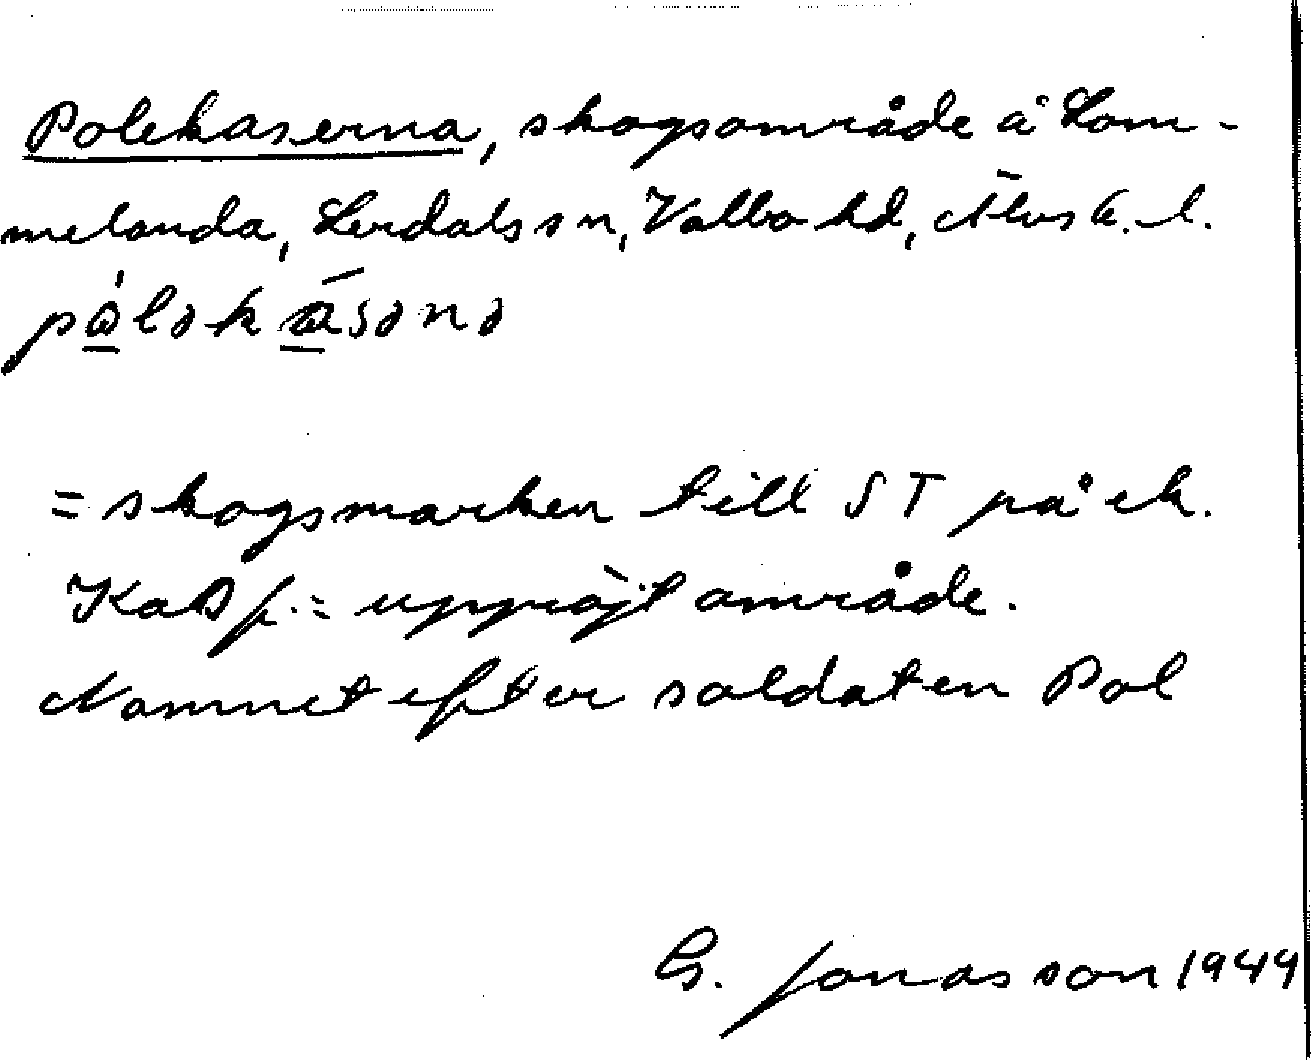 Polekaserna, skogsområde å Lom-
melanda, Lerdals sn, Valbo hd, Älvsb. l.
= skogsmarken till ST på ek.
Kas f. = uppröjt område.
Namnet efter soldaten Pol
G. Jonasson 1949